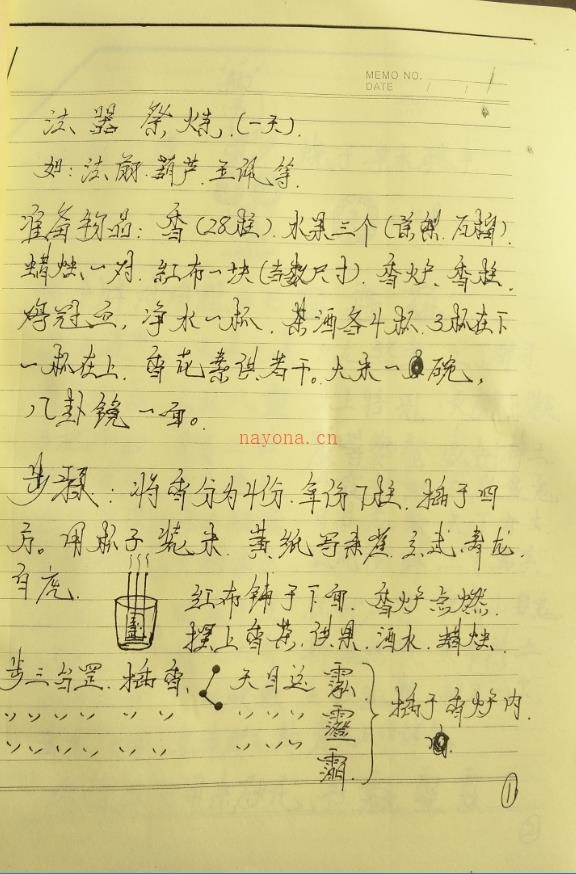 MEMO NO.
DATE / /
1
法器祭炼.(一天).
如:法扇.葫芦.玉佩等.
准备物品:香(28柱).水果三个(
蜡烛一对.红布一块(尺寸).香炉.香柱.
净水一杯.茶酒各4杯.3杯在下
一杯在上.香花素供若干。大米一碗,
八卦镜一面。
nayona.cn
步骤:将香分为4份.每份7柱.插于四
方。用杯子装米.黄纸写朱雀.玄武.青龙.
白虎.
红布铺于下面.香炉点燃.
摆上香茶.供果.酒水.蜡烛.
步三台罡.插香.天目运
插于香炉内.
①